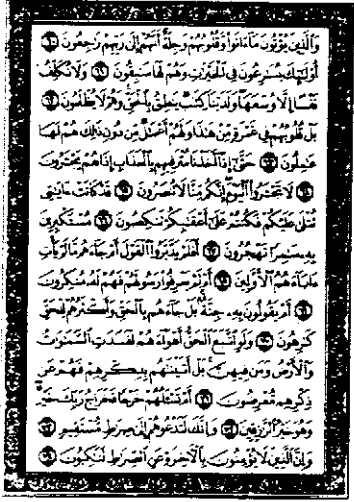 وَٱلَّذِينَ يُؤْتُونَ مَآ ءَاتَوا۟ وَّقُلُوبُهُمْ وَجِلَةٌ أَنَّهُمْ إِلَىٰ رَبِّهِمْ رَٰجِعُونَ ٦٠
أُو۟لَٰٓئِكَ يُسَٰرِعُونَ فِى ٱلْخَيْرَٰتِ وَهُمْ لَهَا سَٰبِقُونَ ٦١ وَلَا نُكَلِّفُ
نَفْسًا إِلَّا وُسْعَهَا وَلَدَيْنَا كِتَٰبٌ يَنطِقُ بِٱلْحَقِّ وَهُمْ لَا يُظْلَمُونَ ٦٢
بَلْ قُلُوبُهُمْ فِى غَمْرَةٍ مِّنْ هَٰذَا وَلَهُمْ أَعْمَٰلٌ مِّن دُونِ ذَٰلِكَ هُمْ لَهَا
عَٰمِلُونَ ٦٣ حَتَّىٰٓ إِذَآ أَخَذْنَا مُتْرَفِيهِم بِٱلْعَذَابِ إِذَا هُمْ يَجْـَٔرُونَ
٦٤ لَا تَجْـَٔرُوا۟ ٱلْيَوْمَ إِنَّكُم مِّنَّا لَا تُنصَرُونَ ٦٥ قَدْ كَانَتْ ءَايَٰتِى
تُتْلَىٰ عَلَيْكُمْ فَكُنتُمْ عَلَىٰٓ أَعْقَٰبِكُمْ تَنكِصُونَ ٦٦ مُسْتَكْبِرِينَ
بِهِۦ سَٰمِرًا تَهْجُرُونَ ٦٧ أَفَلَمْ يَدَّبَّرُوا۟ ٱلْقَوْلَ أَمْ جَآءَهُم مَّا لَمْ يَأْتِ
ءَابَآءَهُمُ ٱلْأَوَّلِينَ ٦٨ أَمْ لَمْ يَعْرِفُوا۟ رَسُولَهُمْ فَهُمْ لَهُۥ مُنكِرُونَ
٦٩ أَمْ يَقُولُونَ بِهِۦ جِنَّةٌۢ بَلْ جَآءَهُم بِٱلْحَقِّ وَأَكْثَرُهُمْ لِلْحَقِّ
كَٰرِهُونَ ٧٠ وَلَوِ ٱتَّبَعَ ٱلْحَقُّ أَهْوَآءَهُمْ لَفَسَدَتِ ٱلسَّمَٰوَٰتُ
وَٱلْأَرْضُ وَمَن فِيهِنَّ بَلْ أَتَيْنَٰهُم بِذِكْرِهِمْ فَهُمْ عَن
ذِكْرِهِم مُّعْرِضُونَ ٧١ أَمْ تَسْـَٔلُهُمْ خَرْجًا فَخَرَاجُ رَبِّكَ خَيْرٌ
وَهُوَ خَيْرُ ٱلرَّٰزِقِينَ ٧٢ وَإِنَّكَ لَتَدْعُوهُمْ إِلَىٰ صِرَٰطٍ مُّسْتَقِيمٍ ٧٣
وَإِنَّ ٱلَّذِينَ لَا يُؤْمِنُونَ بِٱلْءَاخِرَةِ عَنِ ٱلصِّرَٰطِ لَنَٰكِبُونَ ٧٤